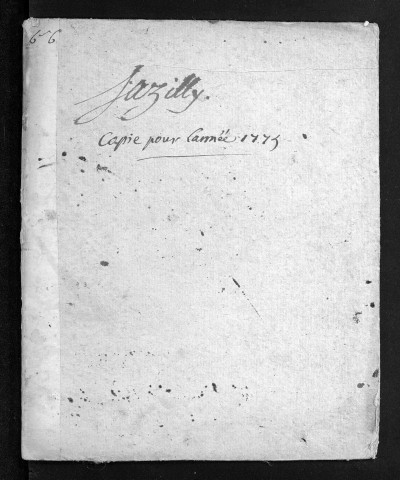 66
Jazilly.
Copie pour l'année 1775